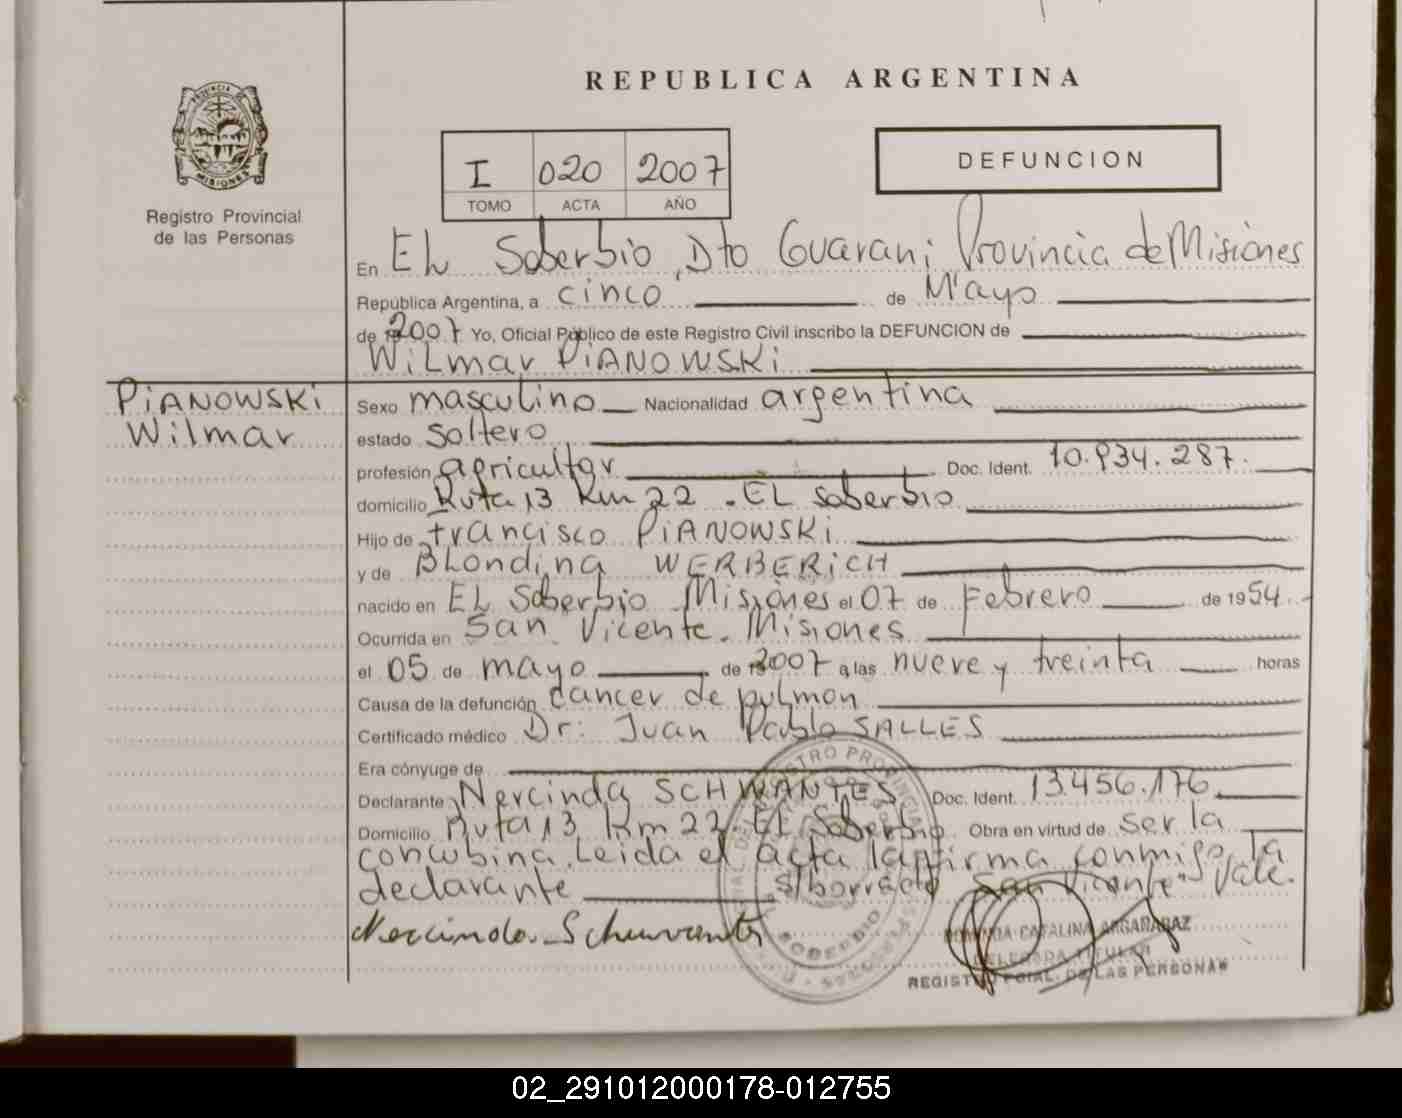 REPUBLICA ARGENTINA
I 020 2007
TOMO ACTA AÑO
DEFUNCION
PROVINCIA DE
MISIONES
Registro Provincial
de las Personas
En EL Soberbio, Dto Guarani Provincia de Misiones
República Argentina, a cinco de Mayo
de 2007 Yo, Oficial Público de este Registro Civil inscribo la DEFUNCION de
WiLmar PiANOWSKi
PiANOWSKi
Wilmar
Sexo masculino Nacionalidad argentina
estado soltero
profesión agricultor Doc. Ident. 10.934.287.
domicilio Ruta 13 Km 22 - EL soberbio
Hijo de francisco PiANOWSKi
y de BLondina WERBERiCH
nacido en EL Soberbio Misiones el 07 de Febrero de 1954
Ocurrida en San Vicente - Misiones
el 05 de mayo de 2007 a las nueve y treinta horas
Causa de la defunción cancer de pulmon
Certificado médico Dr: Juan Pablo SALLES
Era cónyuge de
Declarante Nercinda SCHWANTES Doc. Ident. 13.456.176
Domicilio Ruta 13 Km 22 - EL Soberbio Obra en virtud de ser la
concubina. Leida el acta la firma conmigo, la
declarante S/borrado "San Vicente" Vale.
Nercinda Schwantes
SOBERBIO
CATALINA ARGARAÑAZ
DELEGADA TITULAR
REGISTRO PCIAL. DE LAS PERSONAS
02_291012000178-012755